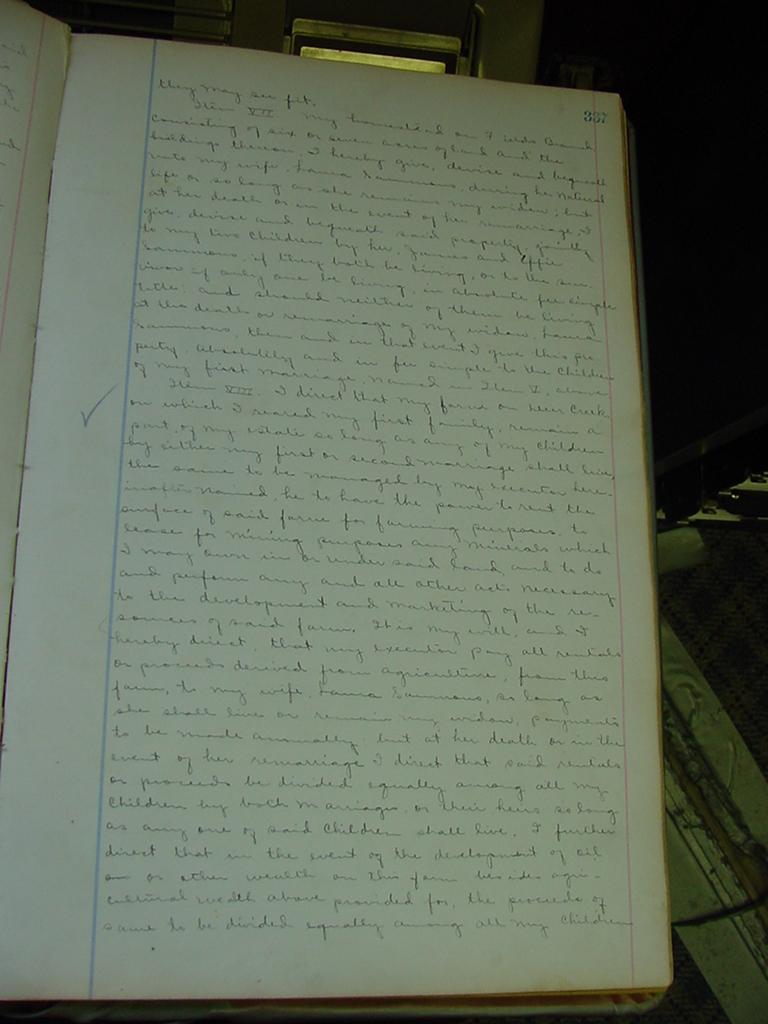 337
they may see fit.
Item VII. My homestead on Fields Branch
consisting of six or seven acres of land and the
buildings thereon, I hereby give, devise and bequeath
unto my wife, Laura Sammons, during her natural
life or so long as she remains my widow; but
at her death or in the event of her remarriage, I
give, devise and bequeath said property, jointly
to my two children by her, James and Effie
Sammons, if they both be living, or to the sur-
vivor if only one be living, in absolute fee simple
title; and should neither of them be living
at the death or remarriage of my widow, Laura
Sammons, then and in that event I give this pro-
perty, absolutely and in fee simple to the children
of my first marriage, named in Item V, above
Item VIII. I direct that my farm on Deer Creek
on which I reared my first family, remain a
part of my estate so long as any of my children
by either my first or second marriage shall live,
the same to be managed by my executor here-
inafter named, he to have the power to rent the
surface of said farm for farming purposes, to
lease for mining purposes any minerals which
I may own in or under said land, and to do
and perform any and all other acts necessary
to the development and marketing of the re-
sources of said farm. It is my will, and I
hereby direct, that my executor pay all rentals
or proceeds derived from agriculture, from this
farm, to my wife, Laura Sammons, so long as
she shall live or remain my widow, payments
to be made annually, but at her death or in the
event of her remarriage I direct that said rentals
or proceeds be divided equally among all my
children by both marriages, or their heirs so long
as any one of said children shall live. I further
direct that in the event of the development of oil
or other wealth on this farm besides agri-
cultural wealth above provided for, the proceeds of
same to be divided equally among all my children